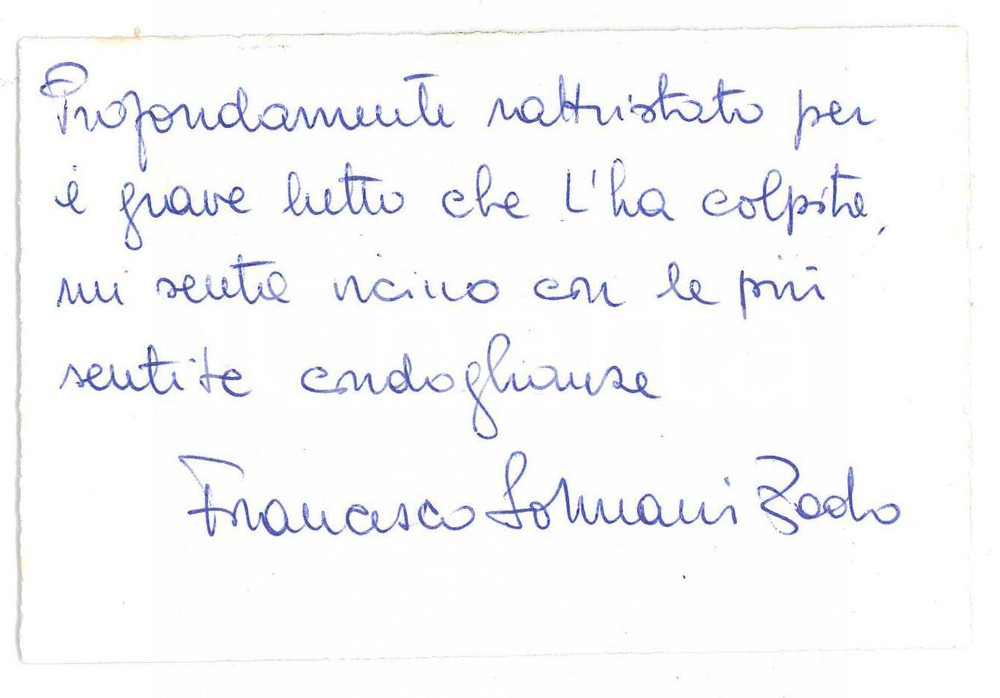 Profondamente rattristato per
il grave lutto che L'ha colpita,
mi senta vicino con le più
sentite condoglianze
Francesco